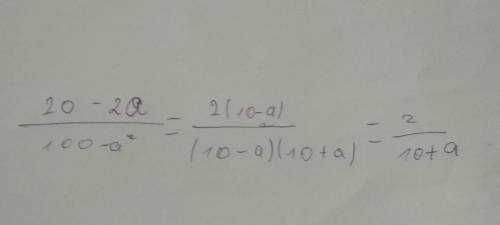 20 - 2a / 100 - a² = 2(10-a) / (10-a)(10+a) = 2 / 10+a